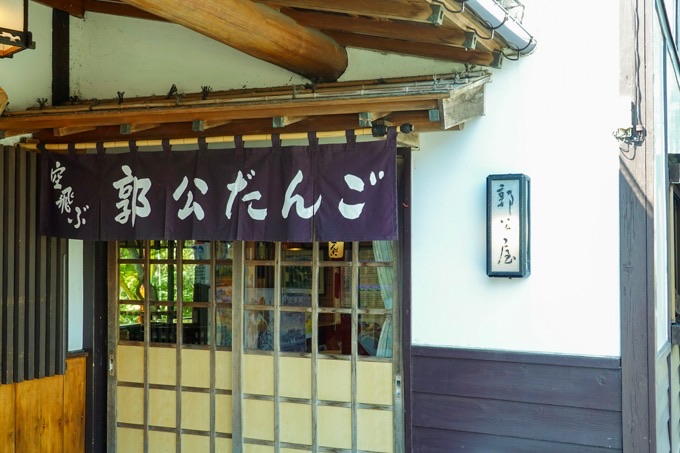 空飛ぶ
郭公だんご
郭公屋